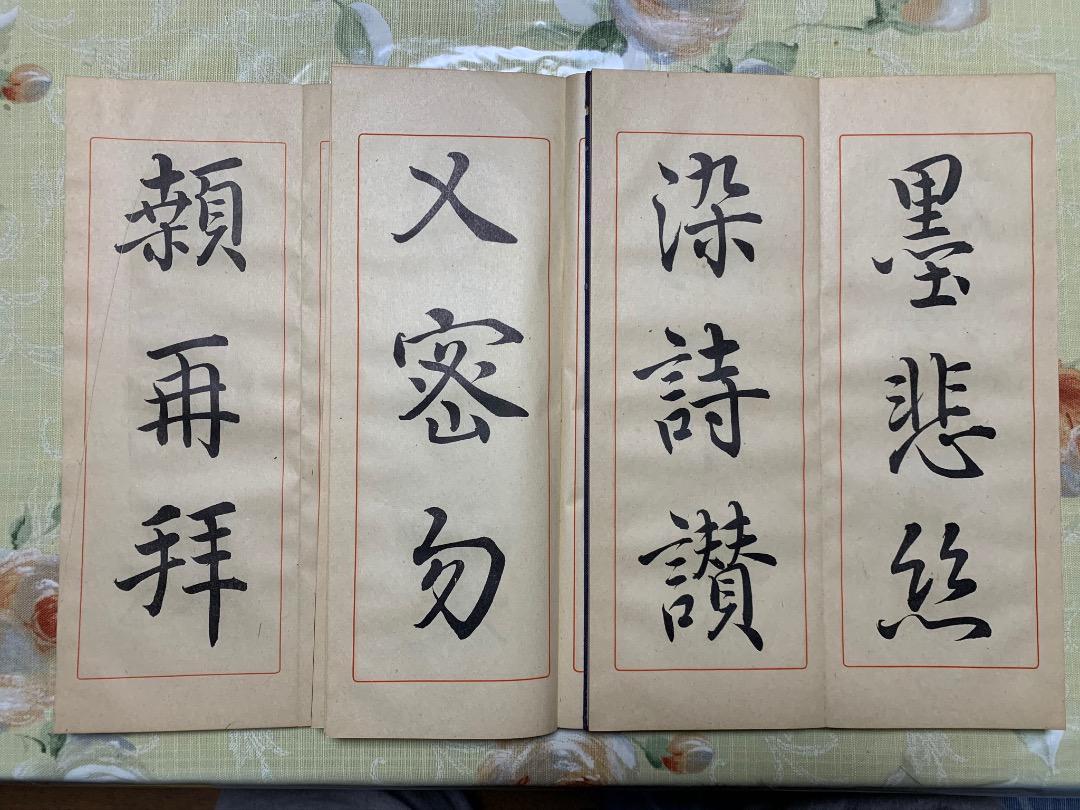 墨悲絲
染詩讃
乂密勿
顙再拜